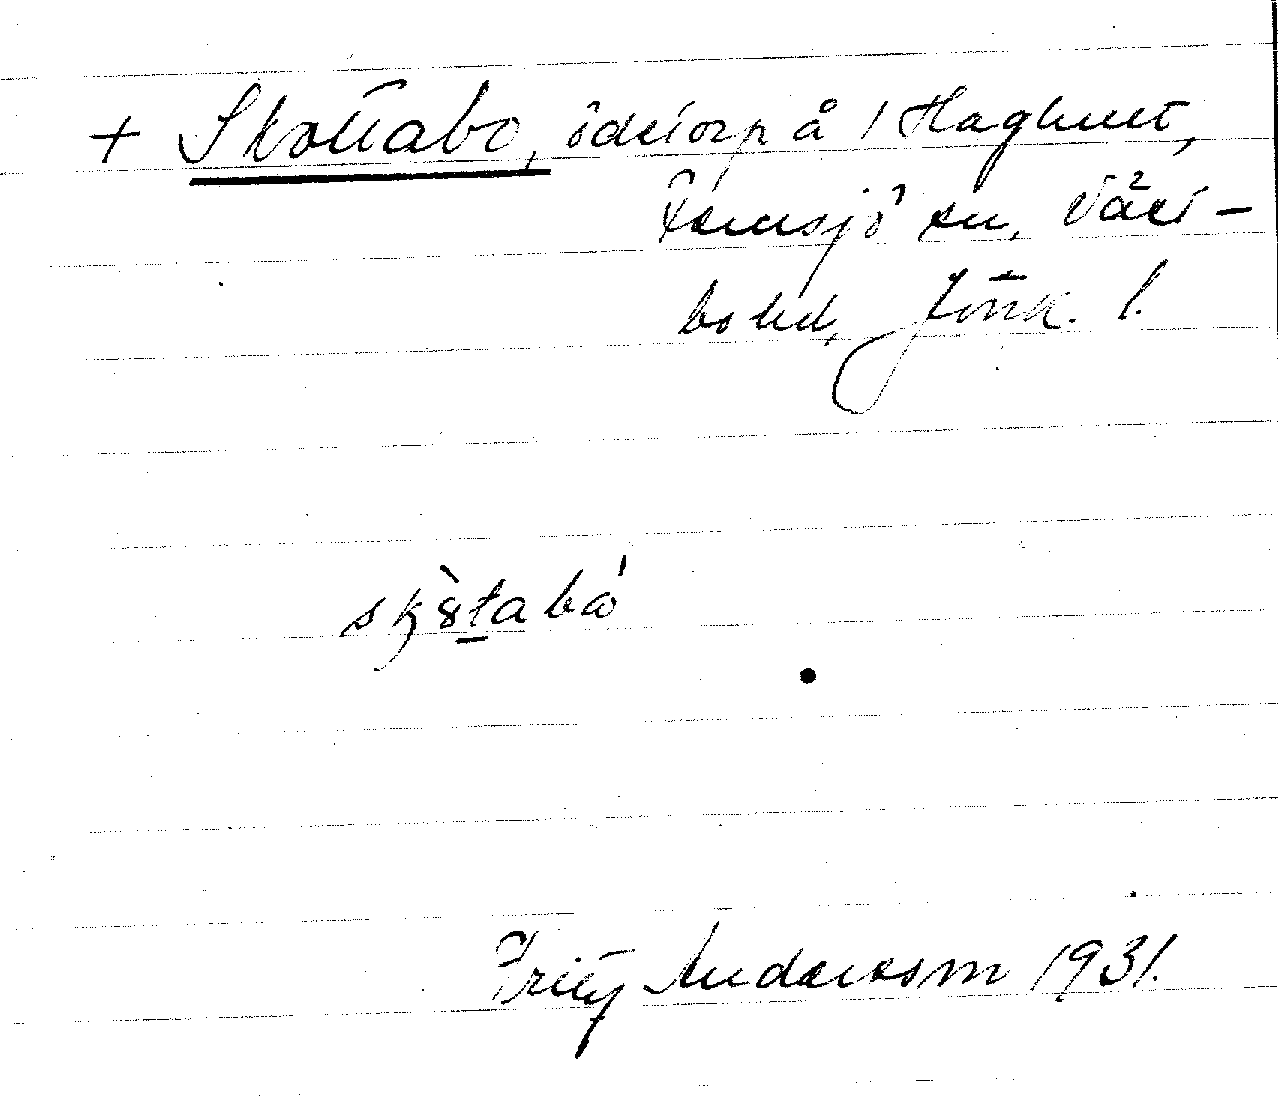 + Skottabo, ödetorp å 1 Haghult,
Femsjö sn, Väst-
bo hd, Jönk. l.
skȣ̀tabo
Fritz Andersson 1931.